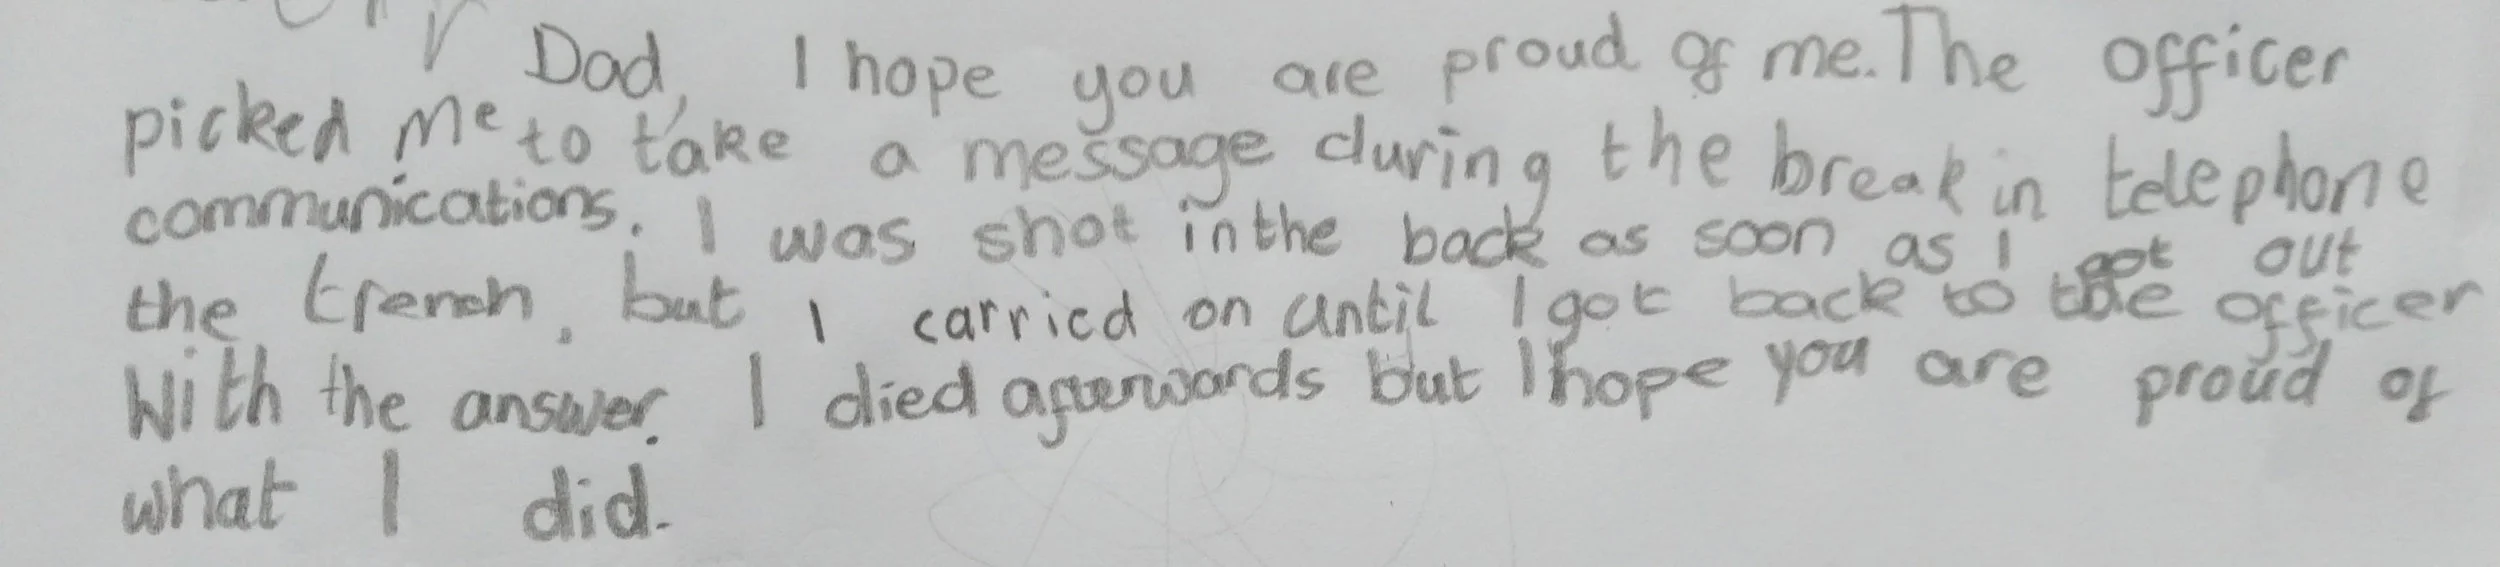 Dad, I hope you are proud of me. The officer
picked me to take a message during the break in telephone
communications. I was shot in the back as soon as I got out
the trench, but I carried on until I got back to the officer
With the answer. I died afterwards but I hope you are proud of
what I did.